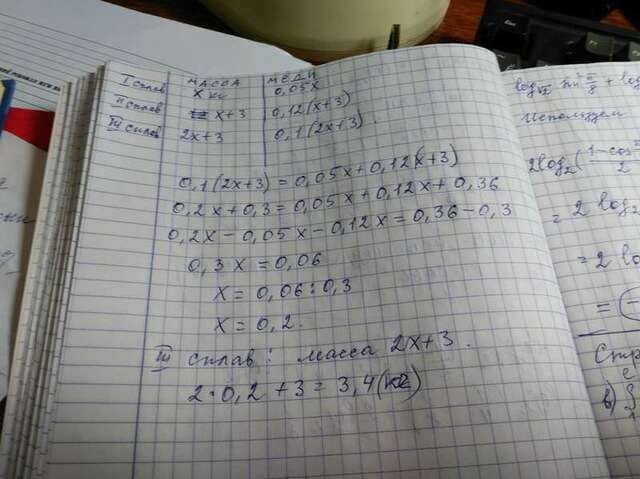 МАССА МЕДИ
I сплав x кг 0,05x
II сплав x+3 0,12(x+3)
III сплав 2x+3 0,1(2x+3).
0,1(2x+3) = 0,05x + 0,12(x+3)
0,2x + 0,3 = 0,05x + 0,12x + 0,36
0,2x - 0,05x - 0,12x = 0,36 - 0,3
0,3x = 0,06
x = 0,06 : 0,3
x = 0,2.
III сплав: масса 2x+3.
2·0,2 + 3 = 3,4 (кг)
Используем
2log₂(
= 2 log₂
= 2 lo
=
Стр
в)